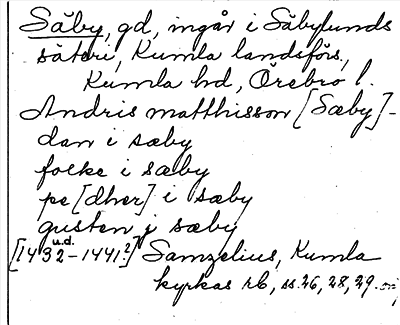 Säby, gd, ingår i Säbylunds
säteri, Kumla landsförs,
Kumla hd, Örebro l.
Andris matthisson [Sæby] -
dan i sæby
folke i sæby
pe [dher] i sæby
gusten j sæby
u.d.
[1432-1441?] Samzelius, Kumla
kyrkas rb, ss. 26, 28, 29.